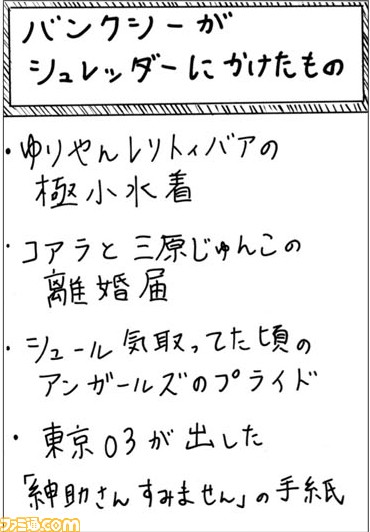 バンクシーが
シュレッダーにかけたもの
・ゆりやんレトリィバアの
極小水着
・コアラと三原じゅんこの
離婚届
・シュール気取ってた頃の
アンガールズのプライド
・東京03が出した
「紳助さんすみません」の手紙
ファミ通.com